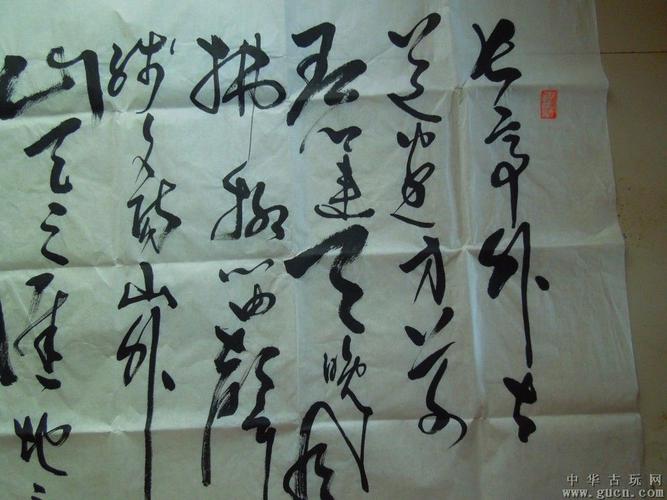 长亭外古
道邊芳草
碧連天晚風
拂柳笛聲
残夕陽山外
山天之涯地
中华古玩网
www.gucn.com